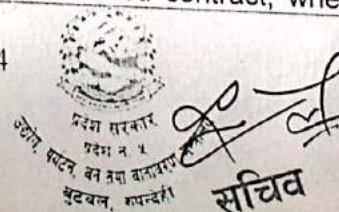 contract, whe
4
प्रदेश सरकार
प्रदेश नं. ५
उद्योग, पर्यटन, वन तथा वातावरण
बुटवल, रुपन्देही
सचिव